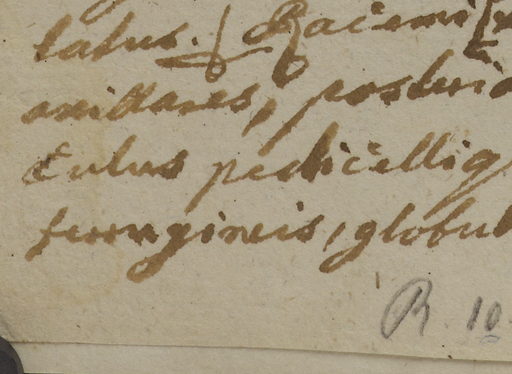 latus. Racemi
axillares, posteri
culus pedicellig
ferrugineis, globul
R. 10